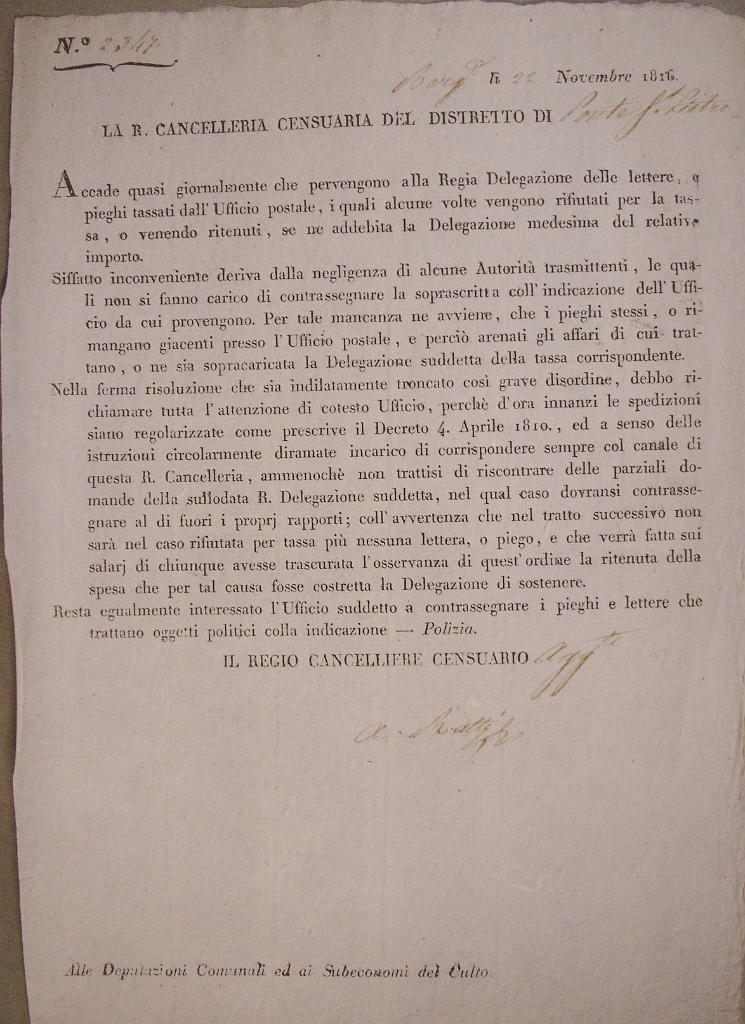 N.º 2347
li 22 Novembre 1816.
LA R. CANCELLERIA CENSUARIA DEL DISTRETTO DI Ponte S. Pietro
Accade quasi giornalmente che pervengono alla Regia Delegazione delle lettere, o
pieghi tassati dall' Ufficio postale, i quali alcune volte vengono rifiutati per la tas-
sa, o venendo ritenuti, se ne addebita la Delegazione medesima del relativo
importo.
Siffatto inconveniente deriva dalla negligenza di alcune Autorità trasmittenti, le qua-
li non si fanno carico di contrassegnare la soprascritta coll' indicazione dell' Uffi-
cio da cui provengono. Per tale mancanza ne avviene, che i pieghi stessi, o ri-
mangano giacenti presso l'Ufficio postale, e perciò arenati gli affari di cui trat-
tano, o ne sia sopracaricata la Delegazione suddetta della tassa corrispondente.
Nella ferma risoluzione che sia indilatamente troncato così grave disordine, debbo ri-
chiamare tutta l'attenzione di cotesto Ufficio, perchè d'ora innanzi le spedizioni
siano regolarizzate come prescrive il Decreto 4. Aprile 1810., ed a senso delle
istruzioni circolarmente diramate incarico di corrispondere sempre col canale di
questa R. Cancelleria, ammenochè non trattisi di riscontrare delle parziali do-
mande della sullodata R. Delegazione suddetta, nel qual caso dovransi contrasse-
gnare al di fuori i proprj rapporti; coll'avvertenza che nel tratto successivo non
sarà nel caso rifiutata per tassa più nessuna lettera, o piego, e che verrà fatta sui
salarj di chiunque avesse trascurata l'osservanza di quest'ordine la ritenuta della
spesa che per tal causa fosse costretta la Delegazione di sostenere.
Resta egualmente interessato l'Ufficio suddetto a contrassegnare i pieghi e lettere che
trattano oggetti politici colla indicazione — Polizia.
IL REGIO CANCELLIERE CENSUARIO Agg.to
Alle Deputazioni Comunali ed ai Subeconomi del Culto